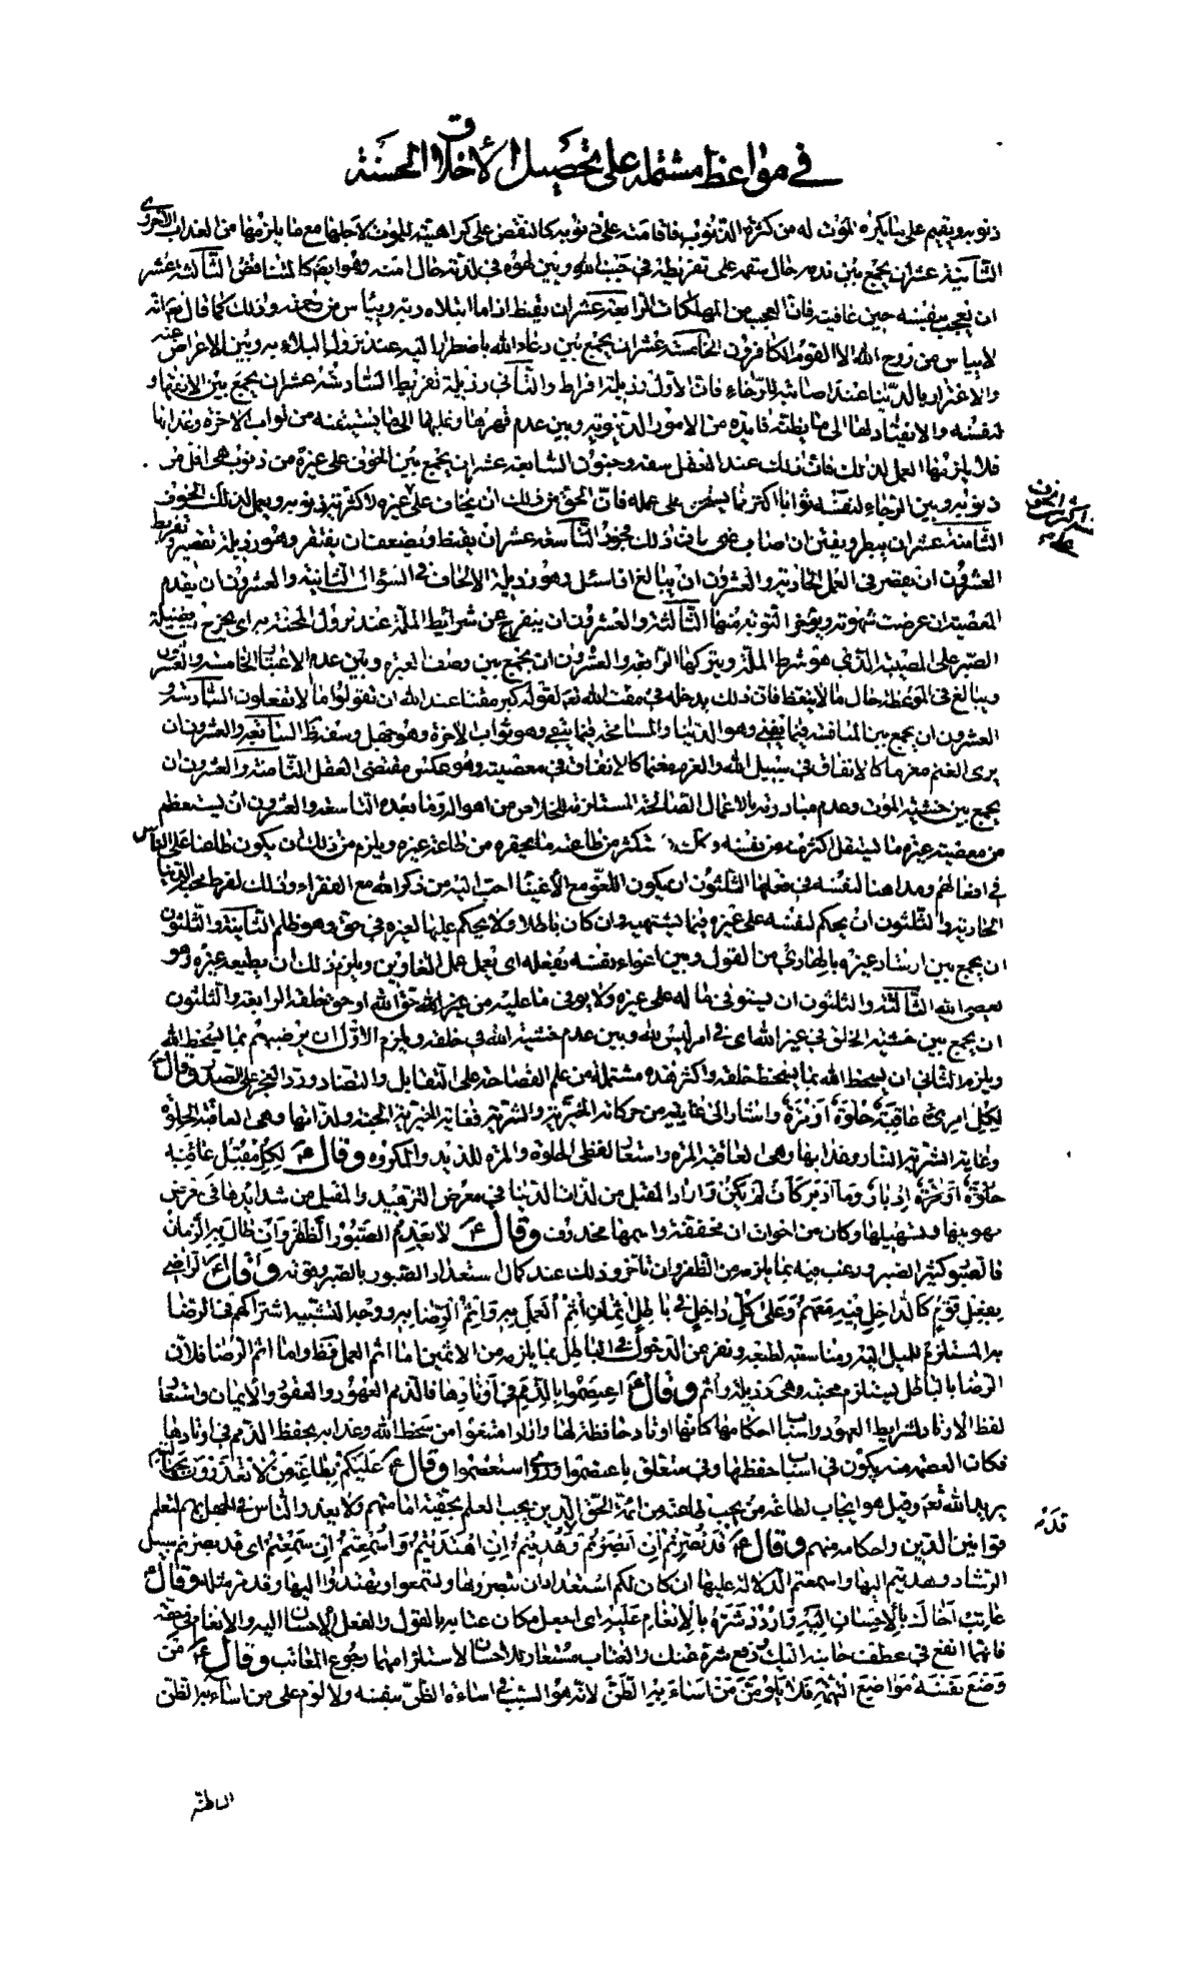 في مواعظ مشتملة على تحصيل الأخلاق الحسنة
ذنوبه ويقيم على ما يكره الموت له من كثرة الذنوب فاقامته على ذنوبه كالنقض على كراهيته للموت لاجلها مع ما يلزمها من العذاب الاخروى
الثانية عشر ان يجمع بين ندمه حال سقمه على تفريطه في جنب الله وبين لهوه في لذته حال امنه وهو ايضا كالمتناقض الثالثة عشر
ان يعجب بنفسه حين عافيته فان العجب من المهلكات الرابعة عشر ان يقنط اذا ما ابتلاه ربه وييأس من رحمته وذلك كما قال تعالى انه
لا ييأس من روح الله الا القوم الكافرون الخامسة عشر ان يجمع بين دعاء الله باضطرار اليه عند نزول البلاء به وبين الاعراض عنه
والاغترار بالدنيا عند اصابته الرخاء فان الاول رذيلة افراط والثاني رذيلة تفريط السادسة عشر ان يجمع بين الانقهار
لنفسه والانقياد لها الى ما يظنه فايدة من الامور الدنيوية وبين عدم قهرها وغلبها الى ما يستيقنه من ثواب الاخرة وعذابها
فلا يلزمها العمل لذلك فان ذلك عند العقل سفه وجنون السابعة عشر ان يجمع بين الخوف على غيره من ذنوب هى اقل من
ذنوبه وبين الرجاء لنفسه ثوابا اكثر مما يستحق على عمله فان الحق من ذلك ان يخاف على غيره لاكثرية ذنوبه ويعمل لذلك الخوف
الثامنة عشر ان يبطر ويفتن ان اصاب غنى فان ذلك فجور التاسعة عشر ان يقنط ويضعف ان يفتقر وهو رذيلة تقصير وتفريط
العشرون ان يقصر في العمل الحادية والعشرون ان يبالغ اذا سئل وهو رذيلة الالحاف في السؤال الثانية والعشرون ان يقدم
المعصية ان عرضت شهوته ويؤخر التوبة منها الثالثة والعشرون ان ينفرج عن شرائط الملة عند نزول المحنة به اى يخرج من فضيلة
الصبر على المصيبة الذى هو شرط الملة ويتركها الرابعة والعشرون ان يجمع بين وصف العبرة وبين عدم الاعتبار الخامسة والعشرون
يبالغ في الموعظة حال ما لا يتعظ فان ذلك يدخله في مقت الله تعالى لقوله كبر مقتا عند الله ان تقولوا ما لا تفعلون السادسة و
العشرون ان يجمع بين المنافسة فيما يفنى وهو الدنيا والمسامحة فيما يبقى وهو ثواب الاخرة وهو جهل وسفه ظ السابعة والعشرون ان
يرى الغنم مغرما كالانفاق في سبيل الله والغرم مغنما كالانفاق في معصيته وهو عكس مقتضى العقل الثامنة والعشرون ان
يجمع بين خشية الموت وعدم مبادرته بالاعمال الصالحة المستلزمة للخلاص من اهواله وما بعده التاسعة والعشرون ان يستعظم
من معصية غيره ما يستقل اكثر منه من نفسه وكك يستكثر من طاعته ما يحقره من طاعة غيره ويلزم من ذلك ان يكون طاعنا على الناس
في افعالهم ومداهنا لنفسه في فعلها الثلثون ان يكون اللغو مع الاغنيا احب اليه من ذكر الله مع الفقراء وذلك لفرط محبة الدنيا
الحادية والثلثون ان يحكم لنفسه على غيره فيما يشتهيه وان كان باطلا ولا يحكم عليها لغيره في حق وهو ظلم الثانية والثلثون
ان يجمع بين ارشاد غيره بالهادى من القول وبين اغواء نفسه بفعله اى يعمل عمل الغاوين ويلزم ذلك ان يطيعه غيره وهو
يعصى الله الثالثة والثلثون ان يستوفى ما له على غيره ولا يوفى ما عليه من غير الله حق الله او حق خلقه الرابعة والثلثون
ان يجمع بين خشية الخلق في غير الله اى في امر ليس لله وبين عدم خشية الله في خلقه ويلزم الاول ان يرضيهم بما يسخط الله
ويلزم الثاني ان يسخط الله بما يسخط خلقه واكثر هذه مشتملة من علم الفصاحة على التقابل والتضاد ورد العجز على الصدر وقال ع
لكل امرئ عاقبة حلوة او مرة واشار الى غايته من حركاته الخيرية والشرية فغاية الخيرية الجنة ولذاتها وهى العاقبة الحلوة
وغاية الشرية النار وعذابها وهى العاقبة المرة واستعار لفظى الحلوة والمرة للذيذ والمكروه وقال ع لكل مقبل
ادبار وما ادبر كان لم يكن واراد المقبل من لذات الدنيا في معرض التزهيد والمقبل من شدايدها في معرض
تهوينها وتسهيلها وكان من اخوات ان مخففة واسمها محذوف وقال ع لا يعدم الصبور الظفر وان طال به الزمان
فالصبور كثير الصبر ورغب فيه بما يلزمه من الظفر وان تأخر وذلك عند كمال استعداد الصبور بالصبر وقوته وقال ع الراضى
بفعل قوم كالداخل فيه معهم وعلى كل داخل في باطل اثمان اثم العمل به واثم الرضا به ووجه التشبيه اشتراكهم في الرضا
به المستلزم للميل اليه ومناسبته لطبعه ونفر عن الدخول في الباطل بما يلزمه من الاثمين اما اثم العمل فظ واما اثم الرضا فلان
الرضا بالباطل يستلزم محبته وهى رذيلة واثم وقال ع اعتصموا بالذمم في اوتادها فالذمم العهود والعقود والايمان واستعار
لفظ الاوتاد لشرايط العهود واسباب احكامها كانها اوتاد حافظة لها واراد امتنعوا من سخط الله وعذابه بحفظ الذمم في اوتادها
فكان المعتصم منه يكون في اسباب حفظها وفي متعلق باعتصموا وروى استعصموا وقال ع عليكم بطاعة من لا تعذرون بجهالته
يريد الله تعالى وقيل هو ايجاب لطاعة من يجب طاعته من ائمة الحق الذين يجب العلم بحقية امامتهم ولا يعذر الناس في الجهل بهم لتعلم
قوانين الدين واحكامه منهم وقال ع قد بصرتم ان ابصرتم وهديتم ان اهتديتم واسمعتم ان استمعتم اى قد بصرتم سبيل
الرشاد وهديتم اليها واسمعتم الدلالة عليها ان كان لكم استعداد ان تبصروها وتستمعوا وتهتدوا اليها وقد مر مثله وقال ع
عاتب اخاك بالاحسان اليه واردد شره بالانعام عليه اى اجعل مكان عتابه بالقول والفعل الاحسان اليه والانعام في حقه
فانهما انفع في عطف جانبه اليك ودفع شره عنك والعتاب مستعار للاحسان لاستلزامهما رجوع المعاتب وقال ع من
وضع نفسه مواضع التهمة فلا يلومن من اساء به الظن لانه هو السبب في اساءة الظن بنفسه ولا لوم على من اساء به الظن